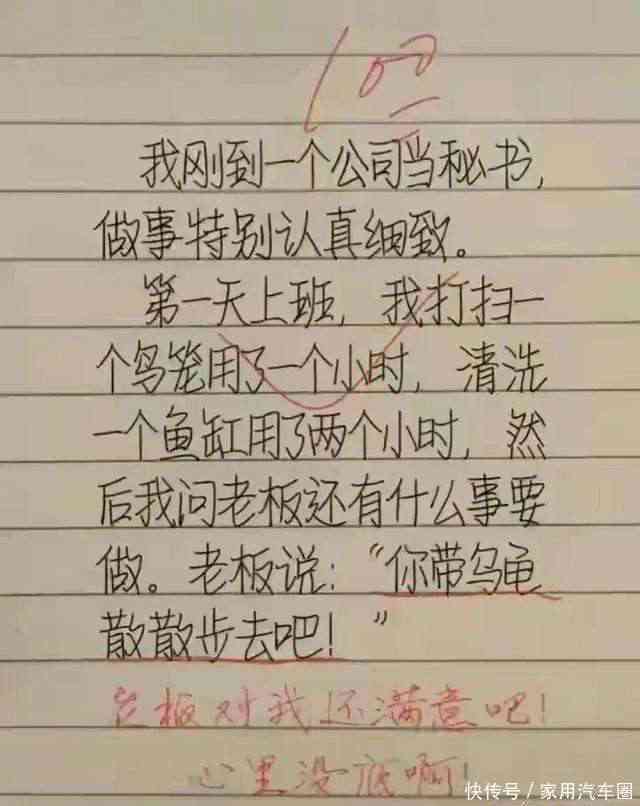 100
我刚到一个公司当秘书，
做事特别认真细致。
第一天上班，我打扫一
个鸟笼用了一个小时，清洗
一个鱼缸用了两个小时，然
后我问老板还有什么事要
做。老板说：“你带乌龟
散散步去吧！”
老板对我还满意吧！
心里没底啊！
快传号／家用汽车圈